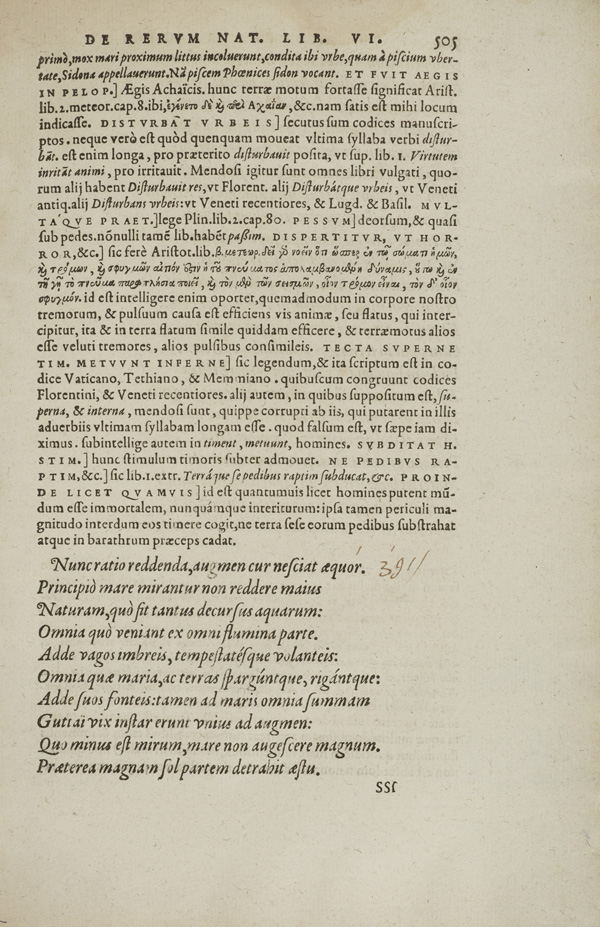 DE RERVM NAT. LIB. VI. 505
primò, mox mari proximum littus incoluerunt, condita ibi vrbe, quam à piscium vber-
tate, Sidona appellauerunt. Nā piscem Phœnices sidon vocant. ET FVIT AEGIS
IN PELOP.] Ægis Achaïcis. hunc terræ motum fortasse significat Arist.
lib.2.meteor.cap.8.ibi, ἐγένετο δὲ καὶ περὶ Αχαΐαν, &c. nam satis est mihi locum
indicasse. DISTVRBA̅T VRBEIS] secutus sum codices manuscri-
ptos. neque verò est quòd quenquam moueat vltima syllaba verbi distur-
bāt. est enim longa, pro præterito disturbauit posita, vt sup. lib. 1. Virtutem
irritāt animi, pro irritauit. Mendosi igitur sunt omnes libri vulgati, quo-
rum alij habent Disturbauit res, vt Florent. alij Disturbátque vrbeis, vt Veneti
antiq. alij Disturbans vrbeis: vt Veneti recentiores, & Lugd. & Basil. MVL-
TA'QVE PRAET.] lege Plin. lib.2.cap.80. PESSVM] deorsum, & quasi
sub pedes. nōnulli tamē lib. habēt passim. DISPERTITVR, VT HOR-
ROR, &c.] sic ferè Aristot. lib. β. μετεωρ. δεῖ γὸ νοεῖν ὅτι ὥσπερ ἐν τῷ σώματι ἡμῶν,
καὶ τρόμων, καὶ σφυγμῶν αἴτιόν ἐστιν ἡ τοῦ πνεύματος ἀπολαμβανομένη δύναμις, οὕτω καὶ ἐν
τῇ γῇ τὸ πνεῦμα παραπλήσια ποιεῖ, καὶ τὸν μὲν τῶν σεισμῶν, οἷον τρόμον εἶναι, τὸν δ' οἷον
σφυγμόν. id est intelligere enim oportet, quemadmodum in corpore nostro
tremorum, & pulsuum causa est efficiens vis animæ, seu flatus, qui inter-
cipitur, ita & in terra flatum simile quiddam efficere, & terræmotus alios
esse veluti tremores, alios pulsibus consimileis. TECTA SVPERNE
TIM. METVVNT INFERNE] sic legendum, & ita scriptum est in co-
dice Vaticano, Tethiano, & Memmiano. quibuscum congruunt codices
Florentini, & Veneti recentiores. alij autem, in quibus suppositum est, su-
perna, & interna, mendosi sunt, quippe corrupti ab iis, qui putarent in illis
aduerbiis vltimam syllabam longam esse. quod falsum est, vt sæpe iam di-
ximus. subintellige autem in timent, metuunt, homines. SVBDITAT H.
STIM.] hunc stimulum timoris subter admouet. NE PEDIBVS RA-
PTIM, &c.] sic lib.1.extr. Terráque se pedibus raptim subducat, &c. PROIN-
DE LICET QVAMVIS] id est quantumuis licet homines putent mū-
dum esse immortalem, nunquámque interiturum: ipsa tamen periculi ma-
gnitudo interdum eos timere cogit, ne terra sese eorum pedibus substrahat
atque in barathrum præceps cadat.
Nunc ratio reddenda, augmen cur nesciat æquor. 391
Principiò mare mirantur non reddere maius
Naturam, quò sit tantus decursus aquarum:
Omnia quò veniant ex omni flumina parte.
Adde vagos imbreis, tempestatésque volanteis:
Omnia quæ maria, ac terras spargúntque, rigántque:
Adde suos fonteis: tamen ad maris omnia summam
Guttai vix instar erunt vnius ad augmen:
Quo minus est mirum, mare non augescere magnum.
Præterea magnam sol partem detrahit æstu.
SSſ